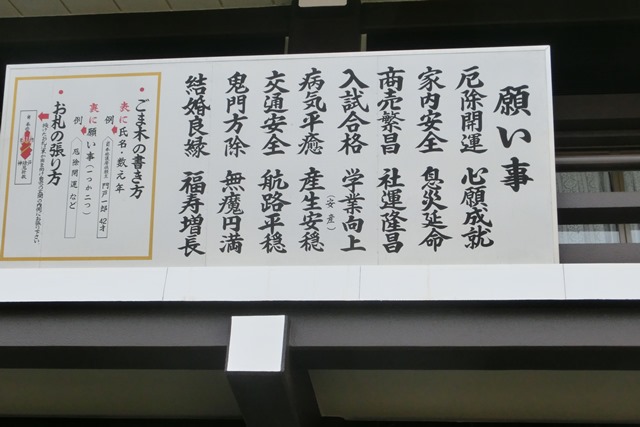 願い事
厄除開運 心願成就
家内安全 息災延命
商売繁昌 社運隆昌
入試合格 学業向上
病気平癒 産生安穏(安産)
交通安全 航路平穏
鬼門方除 無魔円満
結婚良縁 福寿増長
ごま木の書き方
表に氏名・数え年
例
門戸一郎 42才
裏に願い事(一つか二つ)
例
厄除開運 など
お札の張り方